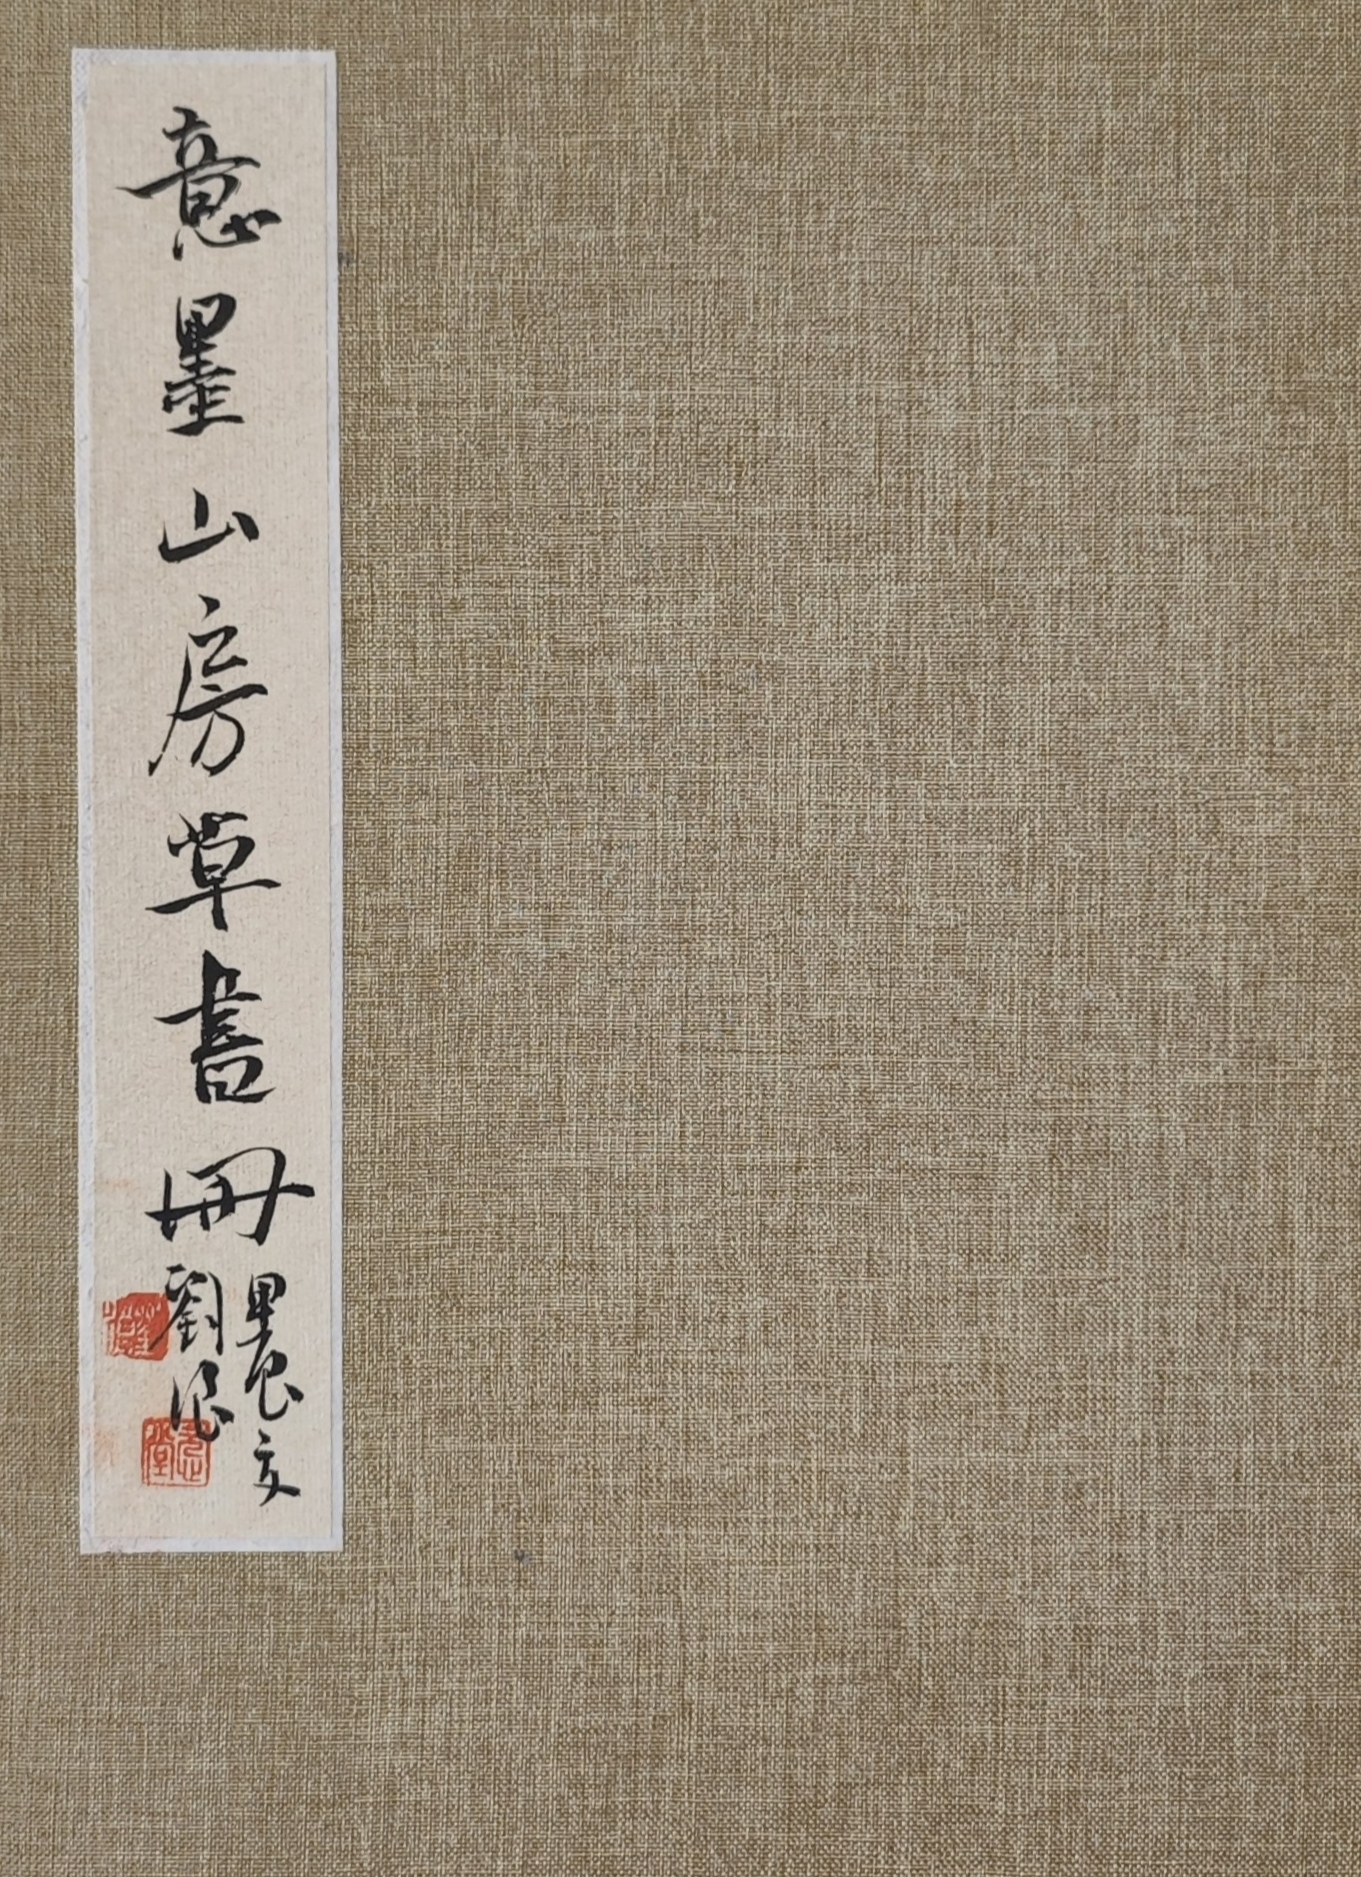 意墨山房草書冊
劉